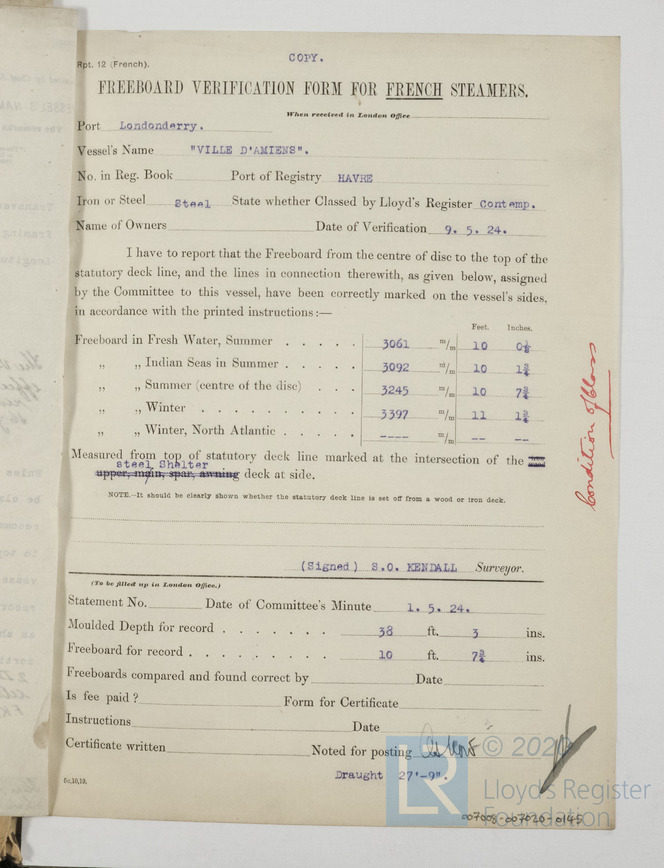 COPY.
Rpt. 12 (French).
FREEBOARD VERIFICATION FORM FOR FRENCH STEAMERS.
When received in London Office
Port Londonderry.
Vessel's Name "VILLE D'AMIENS".
No. in Reg. Book Port of Registry HAVRE
Iron or Steel Steel State whether Classed by Lloyd's Register Contemp.
Name of Owners Date of Verification 9. 5. 24.
I have to report that the Freeboard from the centre of disc to the top of the
statutory deck line, and the lines in connection therewith, as given below, assigned
by the Committee to this vessel, have been correctly marked on the vessel's sides,
in accordance with the printed instructions:—
Feet. Inches.
Freeboard in Fresh Water, Summer . . . . . 3061 m/m 10 0½
„ „ Indian Seas in Summer . . . . . 3092 m/m 10 1¾
„ „ Summer (centre of the disc) . . . 3245 m/m 10 7¾
„ „ Winter . . . . . . . . . . 3397 m/m 11 1¾
„ „ Winter, North Atlantic . . . . . ---- m/m -- --
Measured from top of statutory deck line marked at the intersection of the
steel Shelter
upper, main, spar, awning deck at side.
NOTE.—It should be clearly shown whether the statutory deck line is set off from a wood or iron deck.
Condition of Class
(Signed) S.O. KENDALL Surveyor.
(To be filled up in London Office.)
Statement No. Date of Committee's Minute 1. 5. 24.
Moulded Depth for record . . . . . . . 38 ft. 3 ins.
Freeboard for record . . . . . . . . . 10 ft. 7¾ ins.
Freeboards compared and found correct by Date
Is fee paid? Form for Certificate
Instructions Date
Certificate written Noted for posting
Draught 27'-9".
5c,10,19.
LR © 202
Lloyd's Register
Foundation
007008-007020-0145